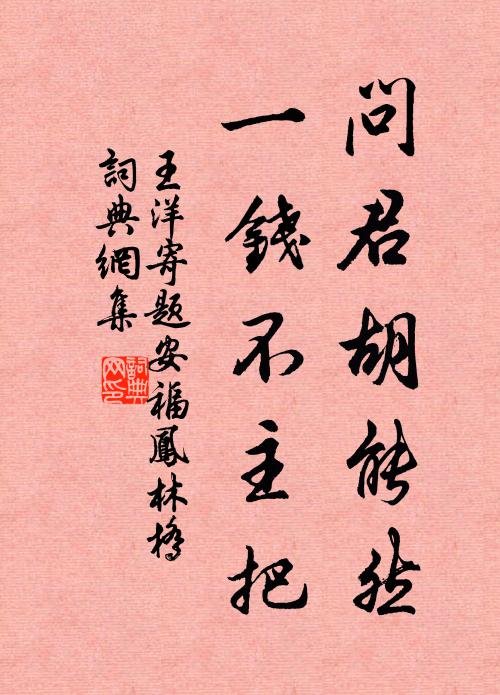 問君胡能然
一錢不主把
王洋寄題安福鳳林橋
詞典網集
詞典
网印